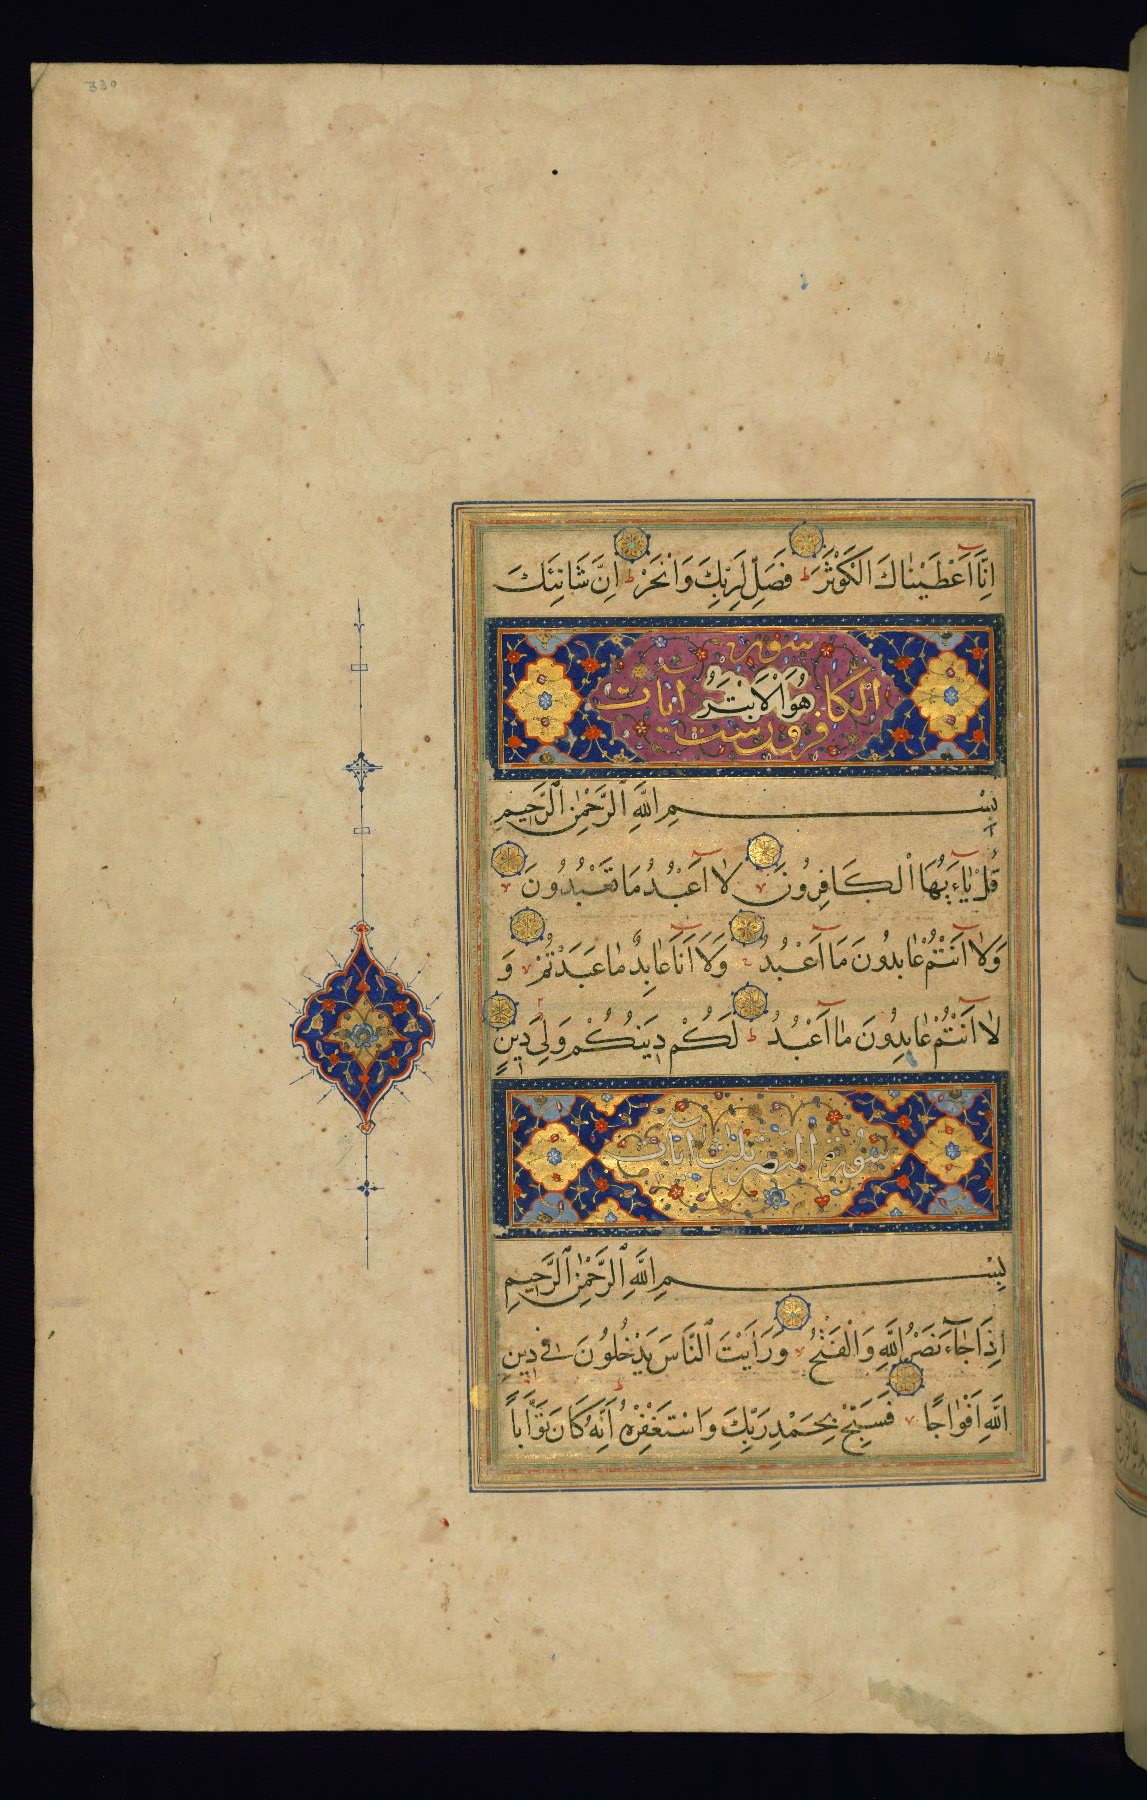 330
اِنَّآ اَعْطَيْنَاكَ الْكَوْثَرَ ط فَصَلِّ لِرَبِّكَ وَانْحَرْ ط اِنَّ شَانِئَكَ
سورة
الكافرون ست آيات
هُوَ الْاَبْتَرُ
بِسْمِ اللَّهِ الرَّحْمٰنِ الرَّحِيمِ
قُلْ يَآءَيُّهَا الْكَافِرُونَ لَآ اَعْبُدُ مَا تَعْبُدُونَ
وَلَآ اَنْتُمْ عَابِدُونَ مَآ اَعْبُدُ وَلَآ اَنَا عَابِدٌ مَا عَبَدْتُمْ وَ
لَآ اَنْتُمْ عَابِدُونَ مَآ اَعْبُدُ ط لَكُمْ دِينُكُمْ وَلِيَ دِينِ
سورة النصر ثلث آيات
بِسْمِ اللَّهِ الرَّحْمٰنِ الرَّحِيمِ
اِذَا جَآءَ نَصْرُ اللَّهِ وَالْفَتْحُ وَرَاَيْتَ النَّاسَ يَدْخُلُونَ فِى دِينِ
اللَّهِ اَفْوَاجًا فَسَبِّحْ بِحَمْدِ رَبِّكَ وَاسْتَغْفِرْهُ ط اِنَّهُ كَانَ تَوَّابًا